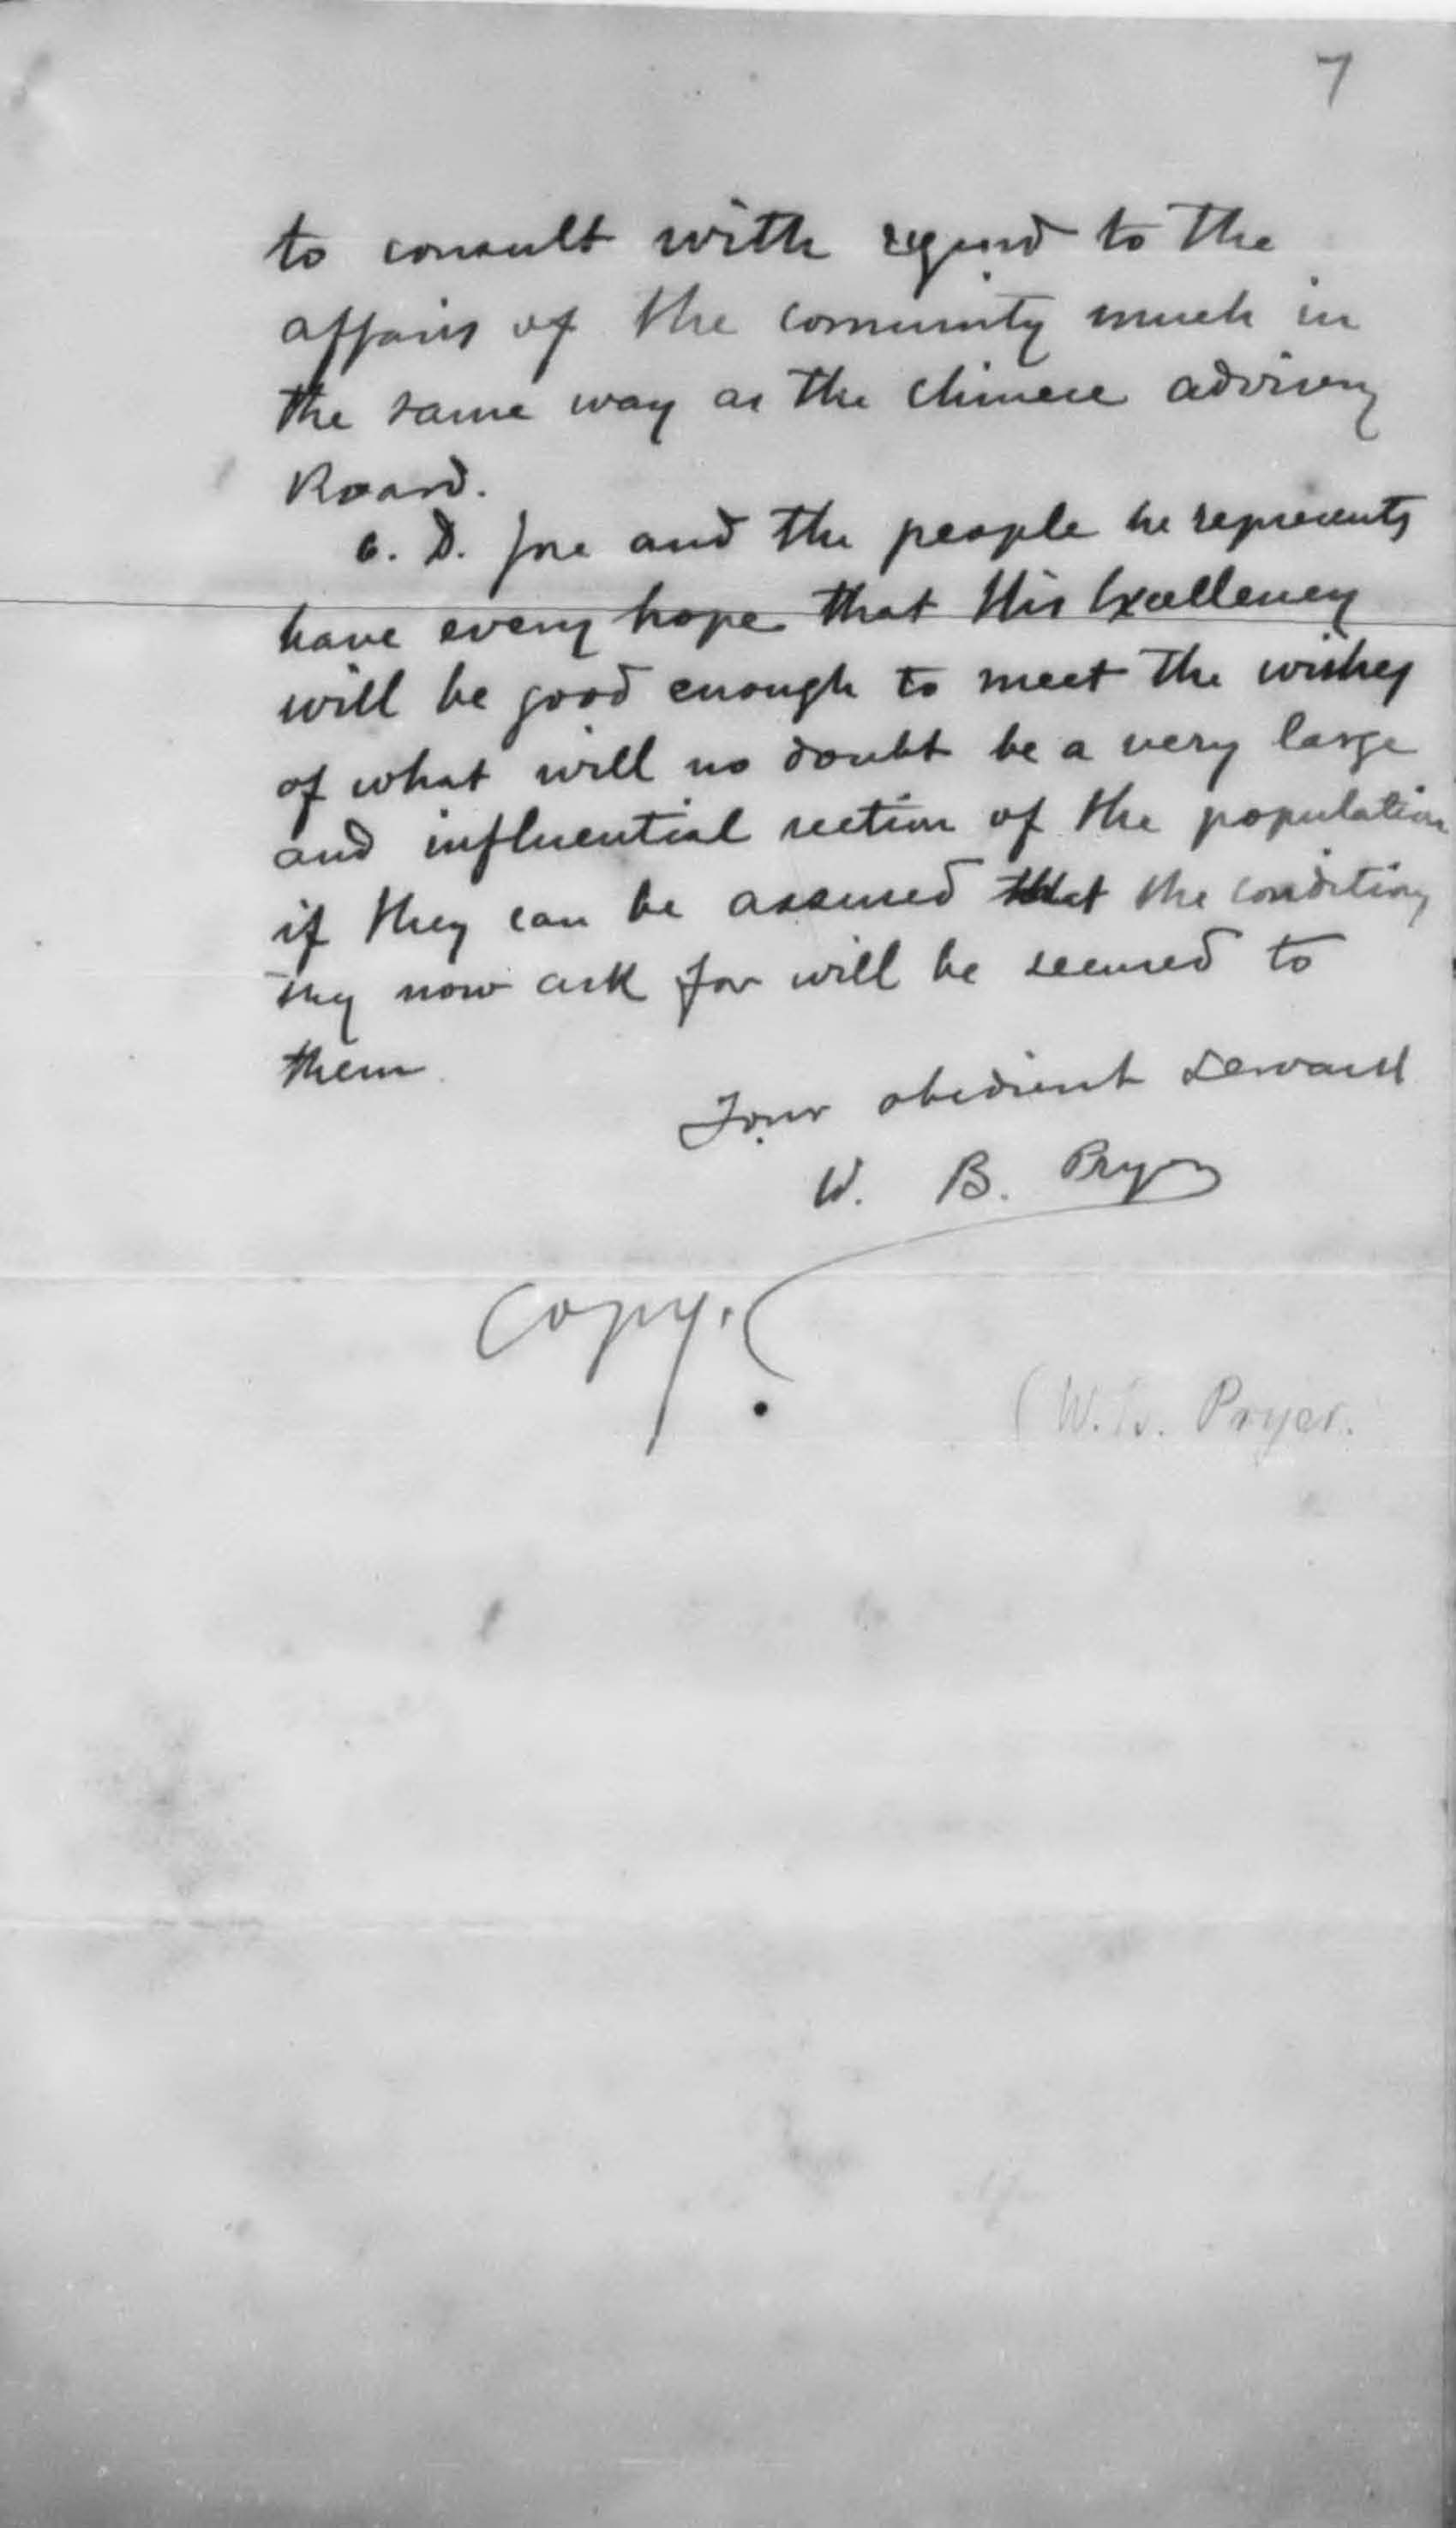 7
to consult with regard to the
affairs of the community much in
the same way as the Chinese advisory
Board.
6. D. Jose and the people he represents
have every hope that His Excellency
will be good enough to meet the wishes
of what will no doubt be a very large
and influential section of the population
if they can be assured that the conditions
they now ask for will be secured to
them
Your obedient Servant
W. B. Pryer
Copy.
(W.B. Pryer.